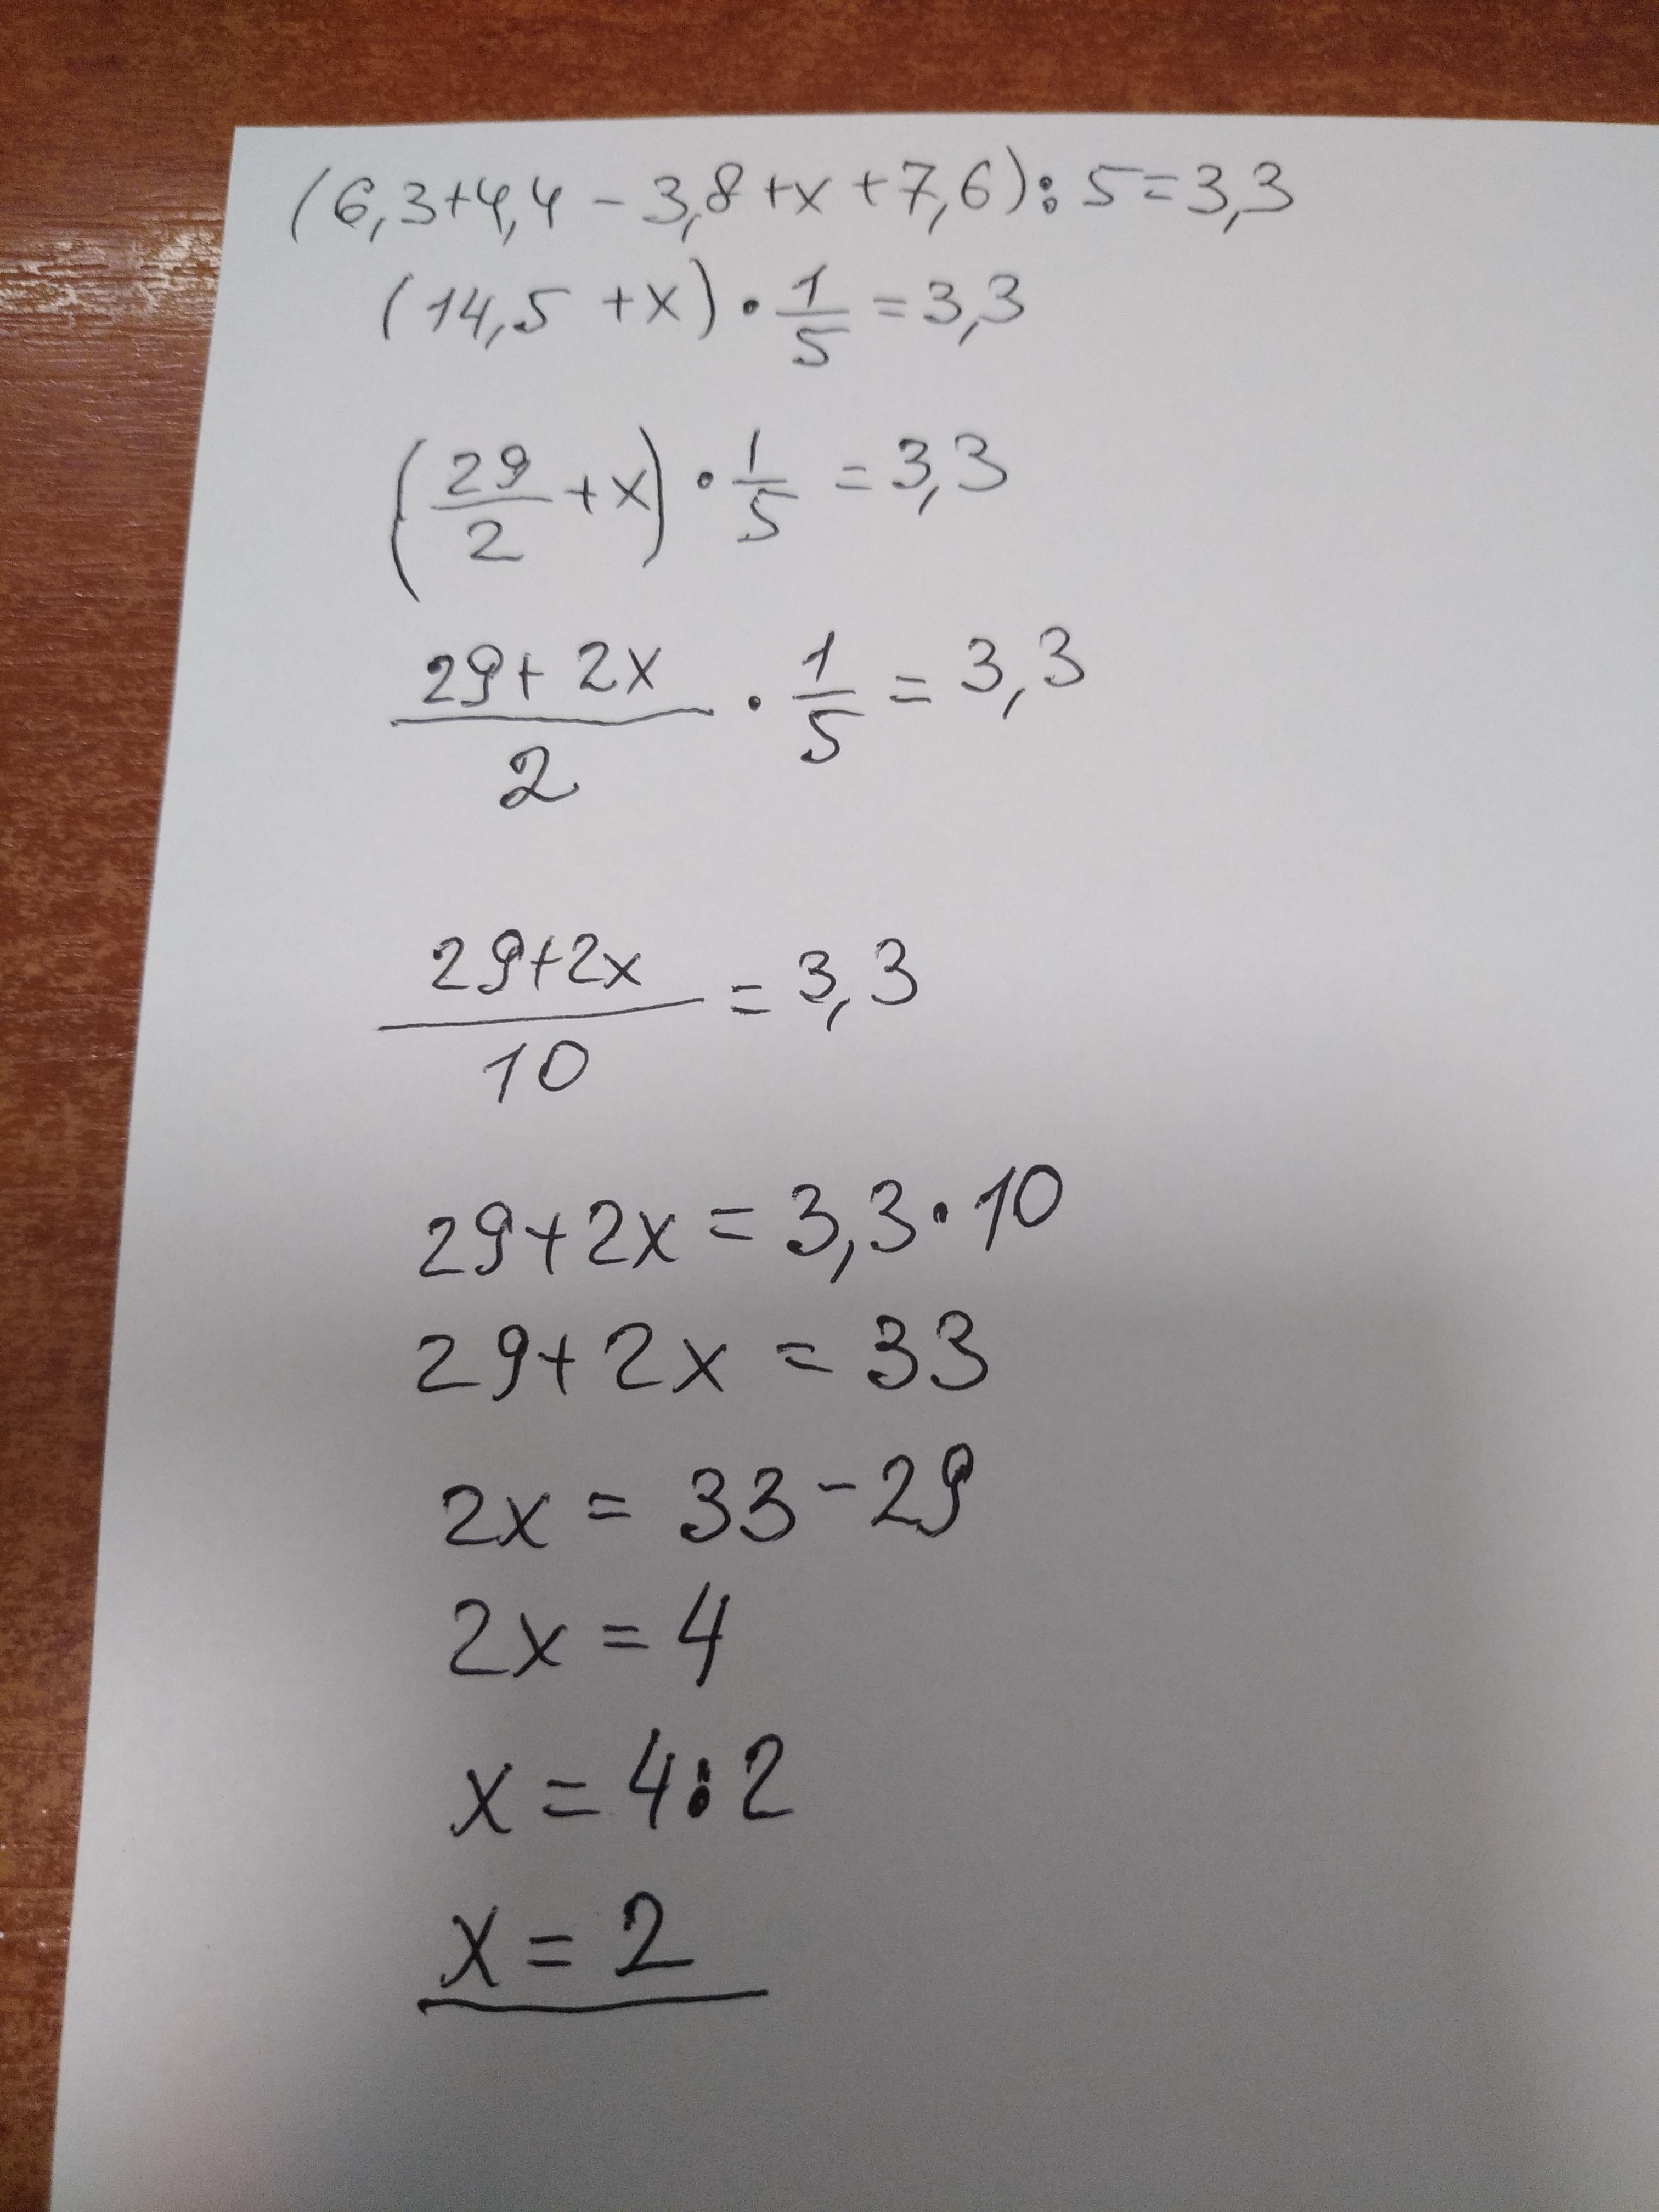 (6,3+4,4-3,8+x+7,6):5=3,3
(14,5+x)·1/5=3,3
(29/2+x)·1/5=3,3
29+2x/2·1/5=3,3
29+2x/10=3,3
29+2x=3,3·10
29+2x=33
2x=33-29
2x=4
x=4:2
x=2